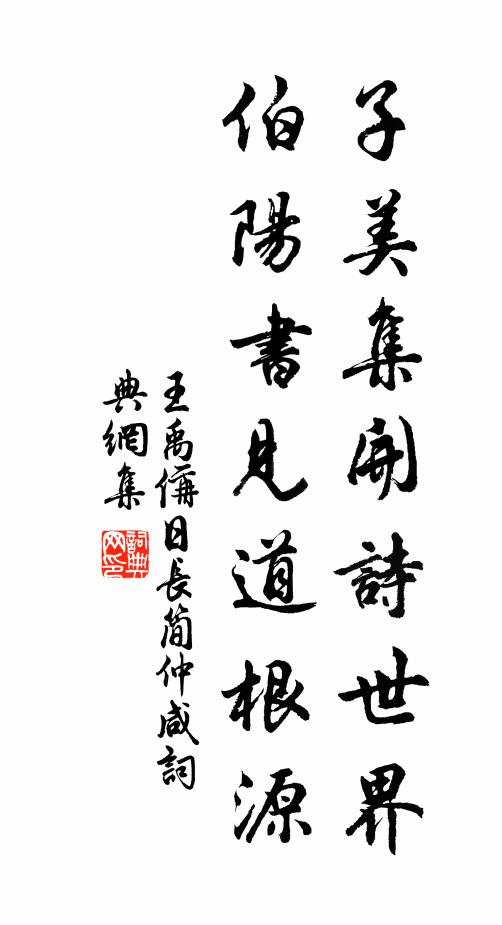 子美集開詩世界
伯陽書見道根源
王禹偁日長簡仲咸詞
典網集
詞典
网印